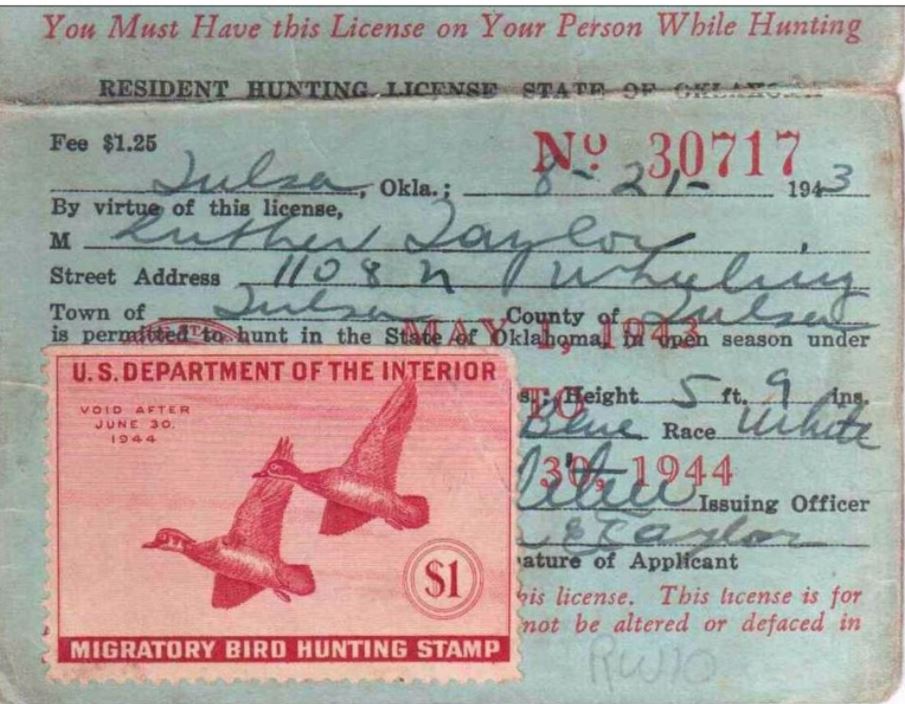 You Must Have this License on Your Person While Hunting
RESIDENT HUNTING LICENSE STATE OF OKLAHOMA
Fee $1.25
Nº 30717
Tulsa, Okla.; 8-21- 1943
By virtue of this license,
M Luther Taylor
Street Address 1108 N Wheeling
Town of Tulsa County of Tulsa
is permitted to hunt in the State of Oklahoma, in open season under
MAY 1, 1943
TO
30, 1944
U.S. DEPARTMENT OF THE INTERIOR
VOID AFTER
JUNE 30,
1944
$1
MIGRATORY BIRD HUNTING STAMP
s.; Height 5 ft. 9 ins.
Blue Race White
Issuing Officer
E Taylor
ature of Applicant
his license. This license is for
not be altered or defaced in
RW10